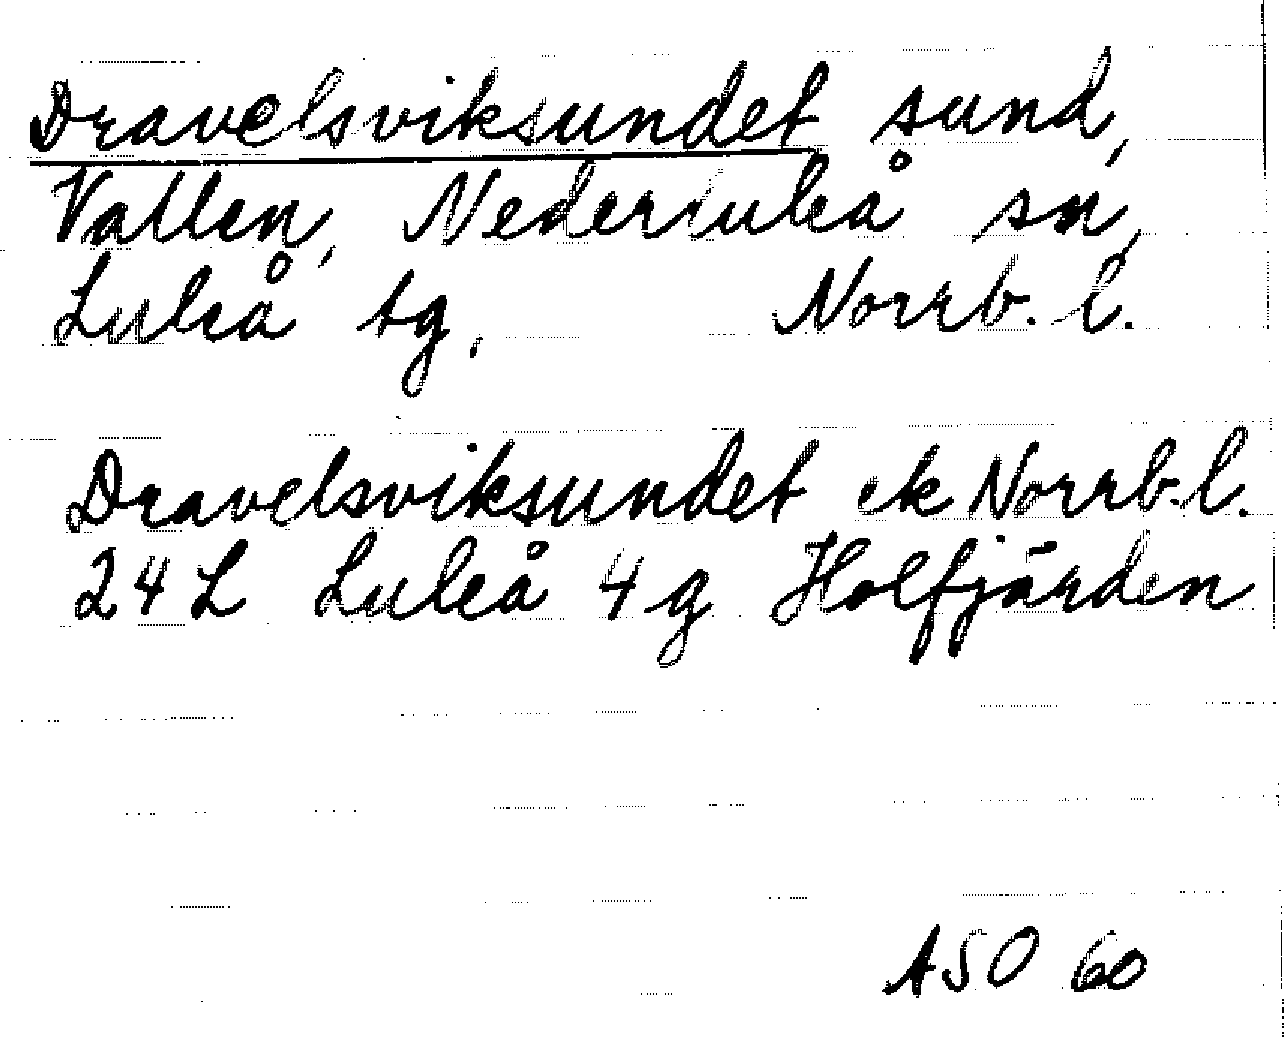 Dravelsviksundet sund,
Vallen, Nederluleå sn,
Luleå tg, Norrb. l.
Dravelsviksundet ek Norrb. l.
24 L Luleå 4 g Holfjärden
ASO 60